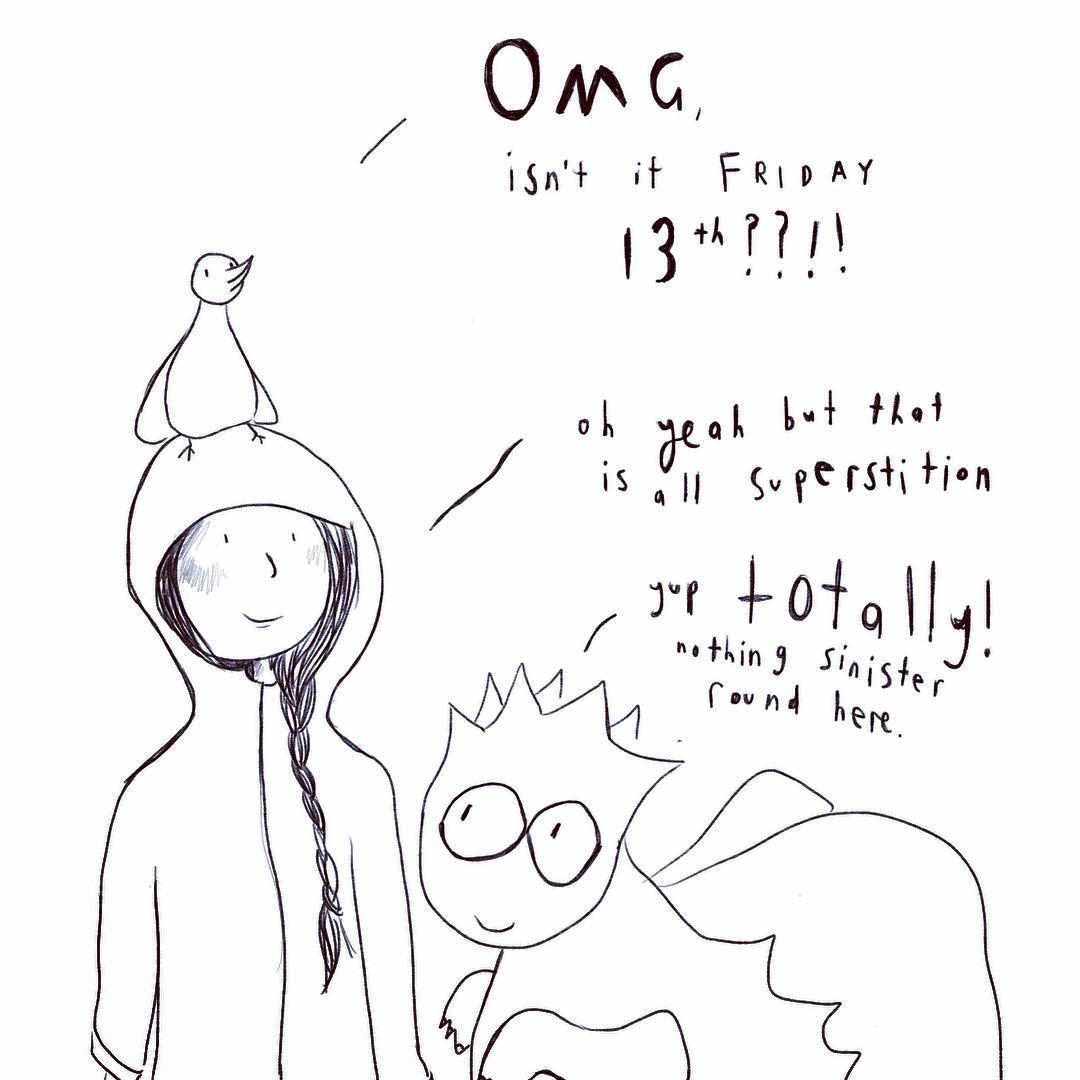 OMG,
isn't it FRIDAY
13th??!!
oh yeah but that
is all superstition
yup totally!
nothing sinister
round here.